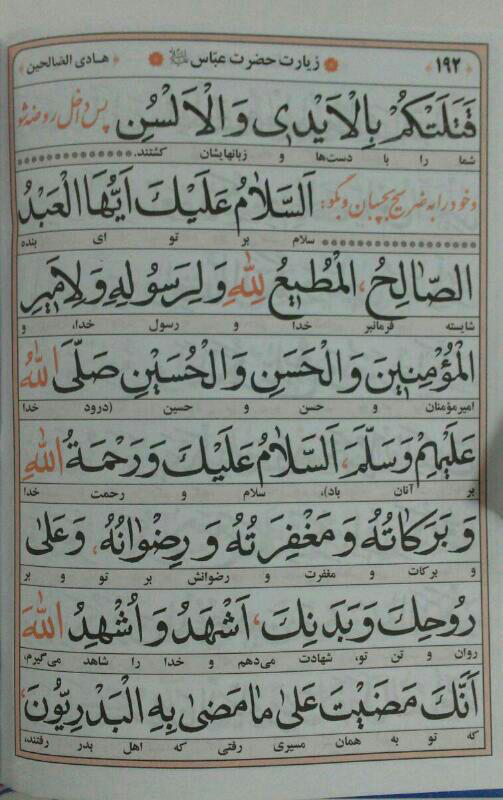 ۱۹۲ زیارت حضرت عبّاس هادی الصّالحین
قَتَلَتْكُمْ بِالْاَيْدى وَالْاَلْسُنِ پس داخل روضه شو
شما را با دست‌ها و زبانهایشان کشتند.
و خود را به ضریح بچسبان و بگو: اَلسَّلامُ عَلَيْكَ اَيُّهَا الْعَبْدُ
سلام بر تو ای بنده
الصّالِحُ، الْمُطيعُ لِلّٰهِ وَلِرَسُولِهِ وَلِاَميرِ
شایسته فرمانبر خدا و رسول خدا، و
الْمُؤْمِنينَ وَالْحَسَنِ وَالْحُسَيْنِ صَلَّى اللّٰهُ
امیرمؤمنان و حسن و حسین (درود خدا
عَلَيْهِمْ وَسَلَّمَ، اَلسَّلامُ عَلَيْكَ وَرَحْمَةُ اللّٰهِ
بر آنان باد)، سلام و رحمت خدا
وَبَرَكاتُهُ وَمَغْفِرَتُهُ وَرِضْوانُهُ، وَعَلى
و برکات و مغفرت و رضوانش بر تو و بر
رُوحِكَ وَبَدَنِكَ، اَشْهَدُ وَاُشْهِدُ اللّٰهَ
روان و تن تو، شهادت می‌دهم و خدا را شاهد می‌گیرم،
اَنَّكَ مَضَيْتَ عَلى ما مَضى بِهِ الْبَدْرِيُّونَ،
که تو به همان مسیری رفتی که اهل بدر رفتند،